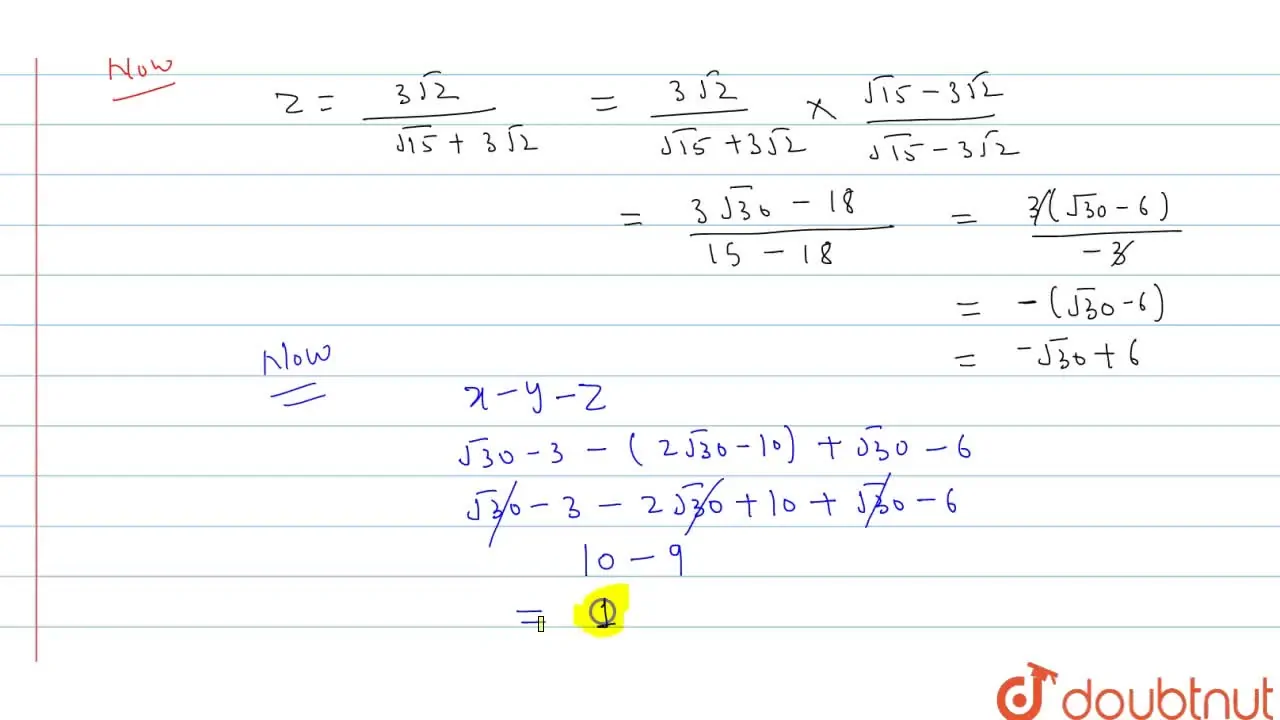 Now
z = 3√2 / (√15 + 3√2) = 3√2 / (√15 + 3√2) × (√15 - 3√2) / (√15 - 3√2)
= (3√30 - 18) / (15 - 18) = 3(√30 - 6) / -3
= -(√30 - 6)
= -√30 + 6
Now
x - y - z
√30 - 3 - (2√30 - 10) + √30 - 6
√30 - 3 - 2√30 + 10 + √30 - 6
10 - 9
= 1
doubtnut